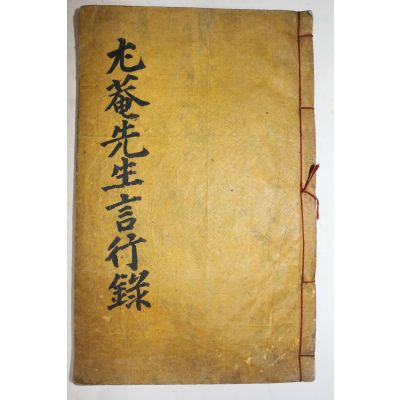 尤菴先生言行錄